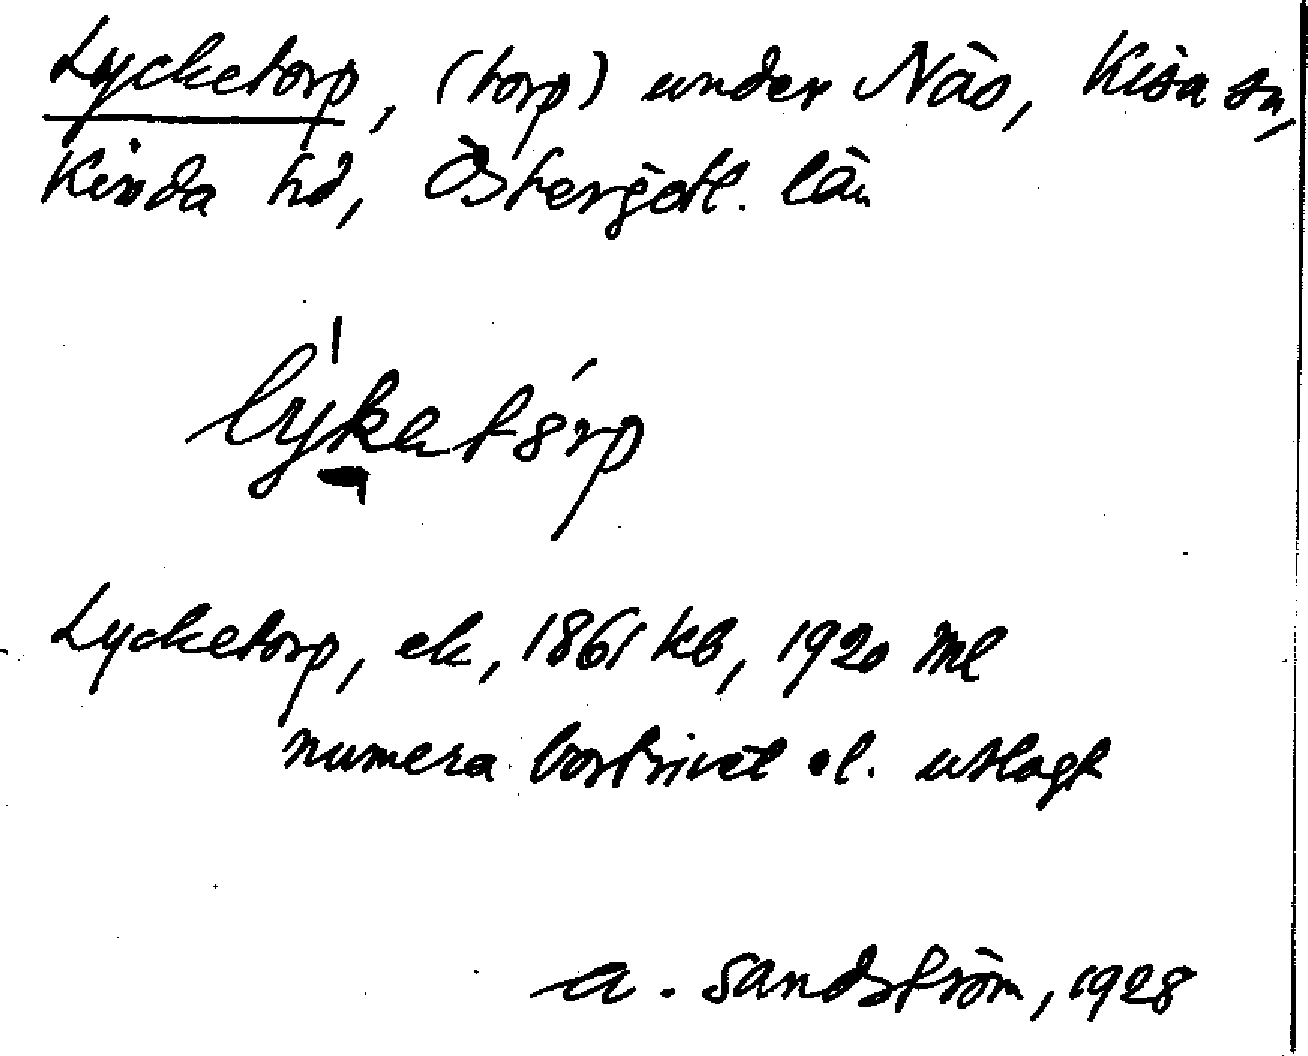 Lycketorp, (torp) under Näs, Kisa sn,
Kinda hd, Östergötl. län
Lycketorp, ek, 1861 kb, 1920 Ml
numera bortrivet el. utlagt
A. Sandström, 1928